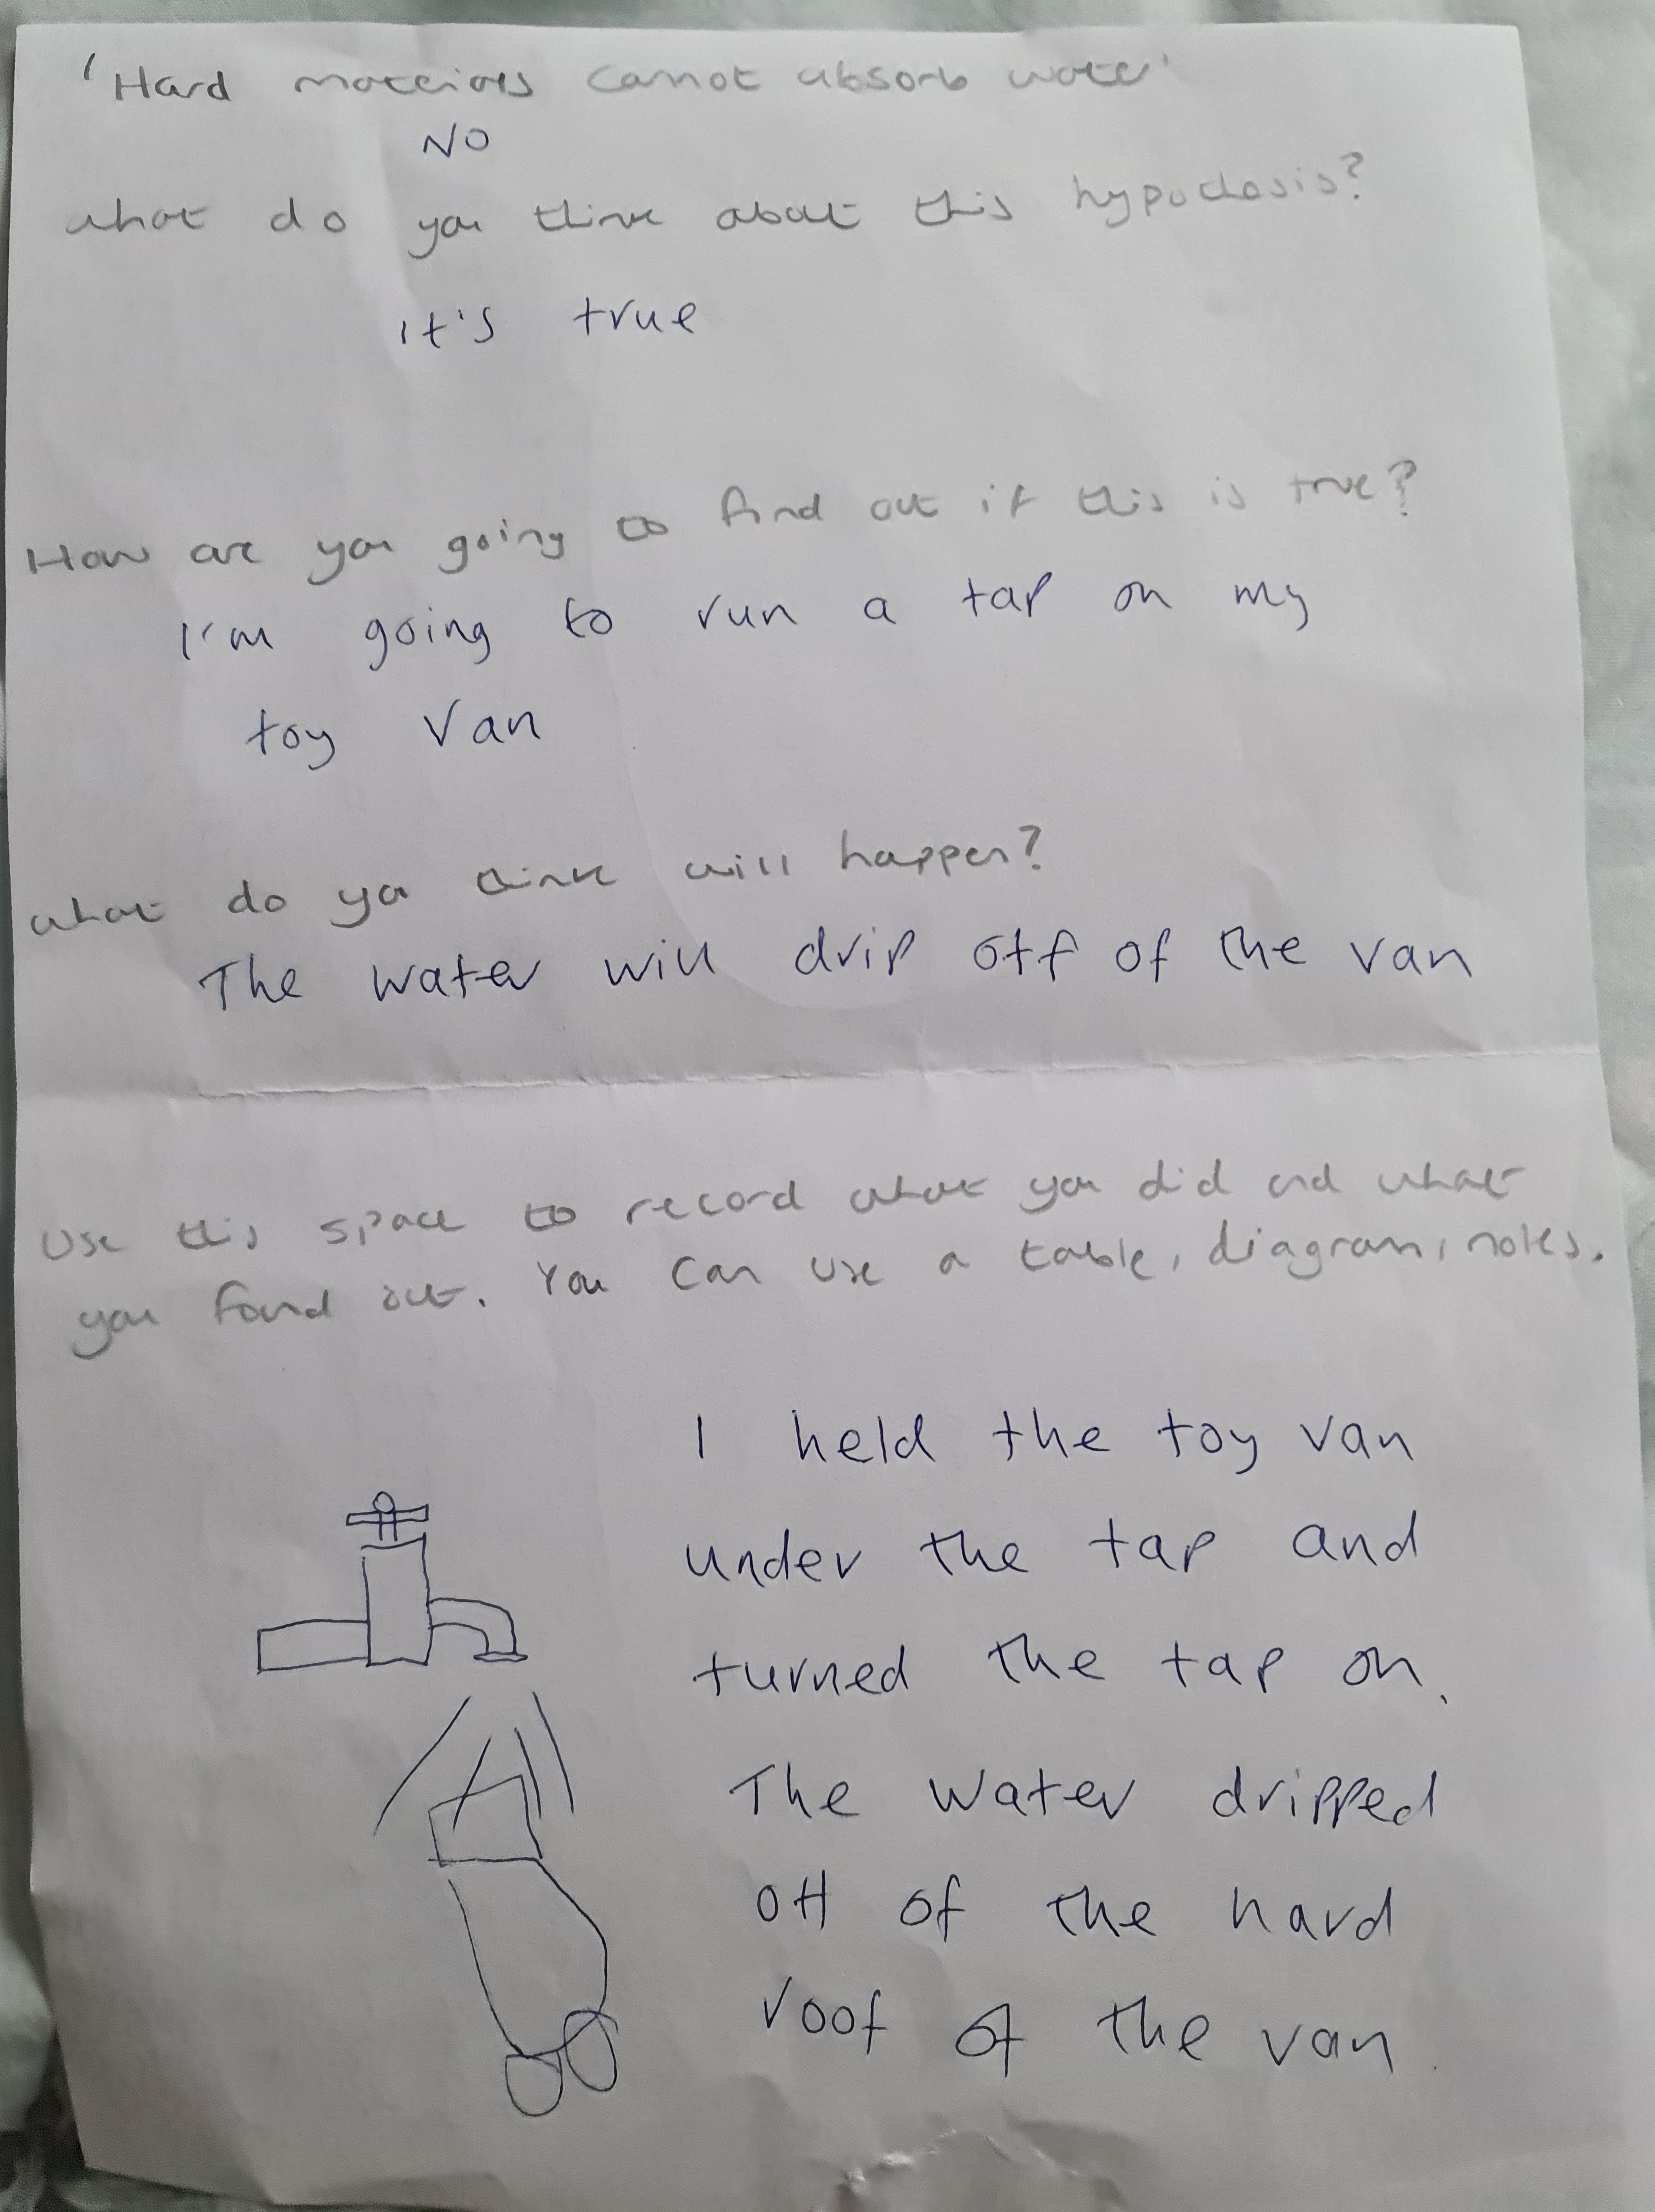 'Hard materials cannot absorb water'
NO
what do you think about this hypothesis?
it's true
How are you going to find out if this is true?
I'm going to run a tap on my
toy van
what do you think will happen?
The water will drip off of the van
Use this space to record what you did and what
you found out. You can use a table, diagram, notes.
I held the toy van
under the tap and
turned the tap on.
The water dripped
off of the hard
roof of the van.